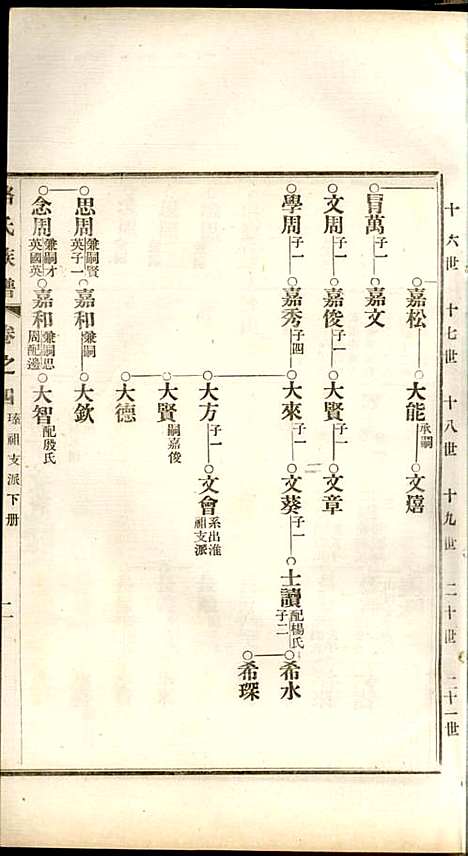 十六世 十七世 十八世 十九世 二十世 二十一世
嘉松 大能 承嗣 文熺
冐萬 子一 嘉文
文周 子一 嘉俊 子一 大賢 子一 文章
學周 子一 嘉秀 子四 大來 子一 文葵 子一 士讀 配楊氏 子二 希水
希琛
大方 子一 文會 系出淮祖支派
大賢 嗣嘉俊
大德
思周 兼嗣賢英子一 嘉和 兼嗣 大欽
念周 兼嗣才英國英 嘉和 兼嗣思周配邊 大智 配殷氏
氏族譜 卷之四 瑧祖支派下册 二